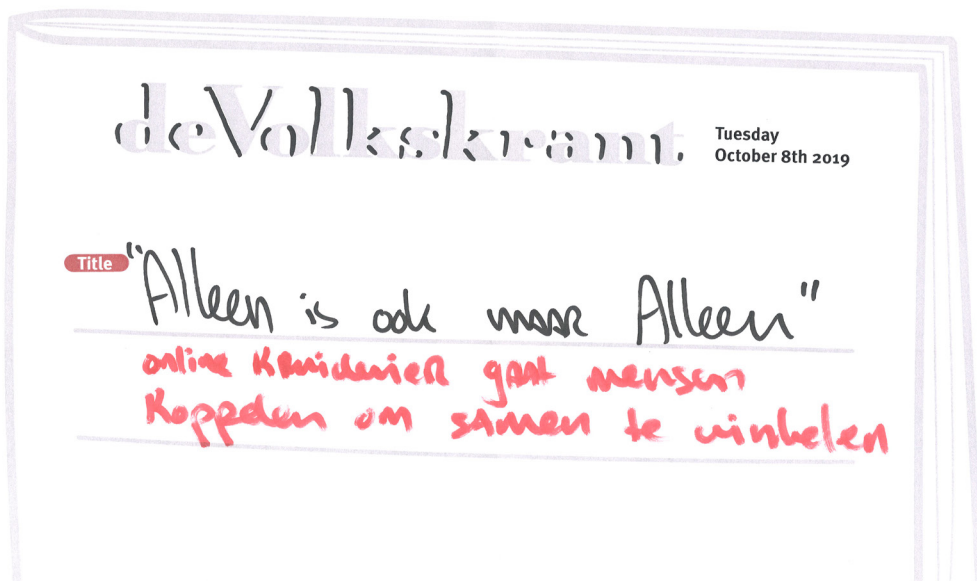 deVolkskrant
Tuesday
October 8th 2019
Title
"Alleen is ook maar Alleen"
online kruidenier gaat mensen
koppelen om samen te winkelen